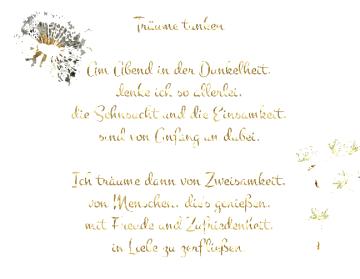 Träume tanken
Am Abend in der Dunkelheit,
denke ich so allerlei,
die Sehnsucht und die Einsamkeit,
sind von Anfang an dabei.
Ich träume dann von Zweisamkeit,
von Menschen, dies genießen,
mit Freude und Zufriedenheit,
in Liebe zu zerfließen.